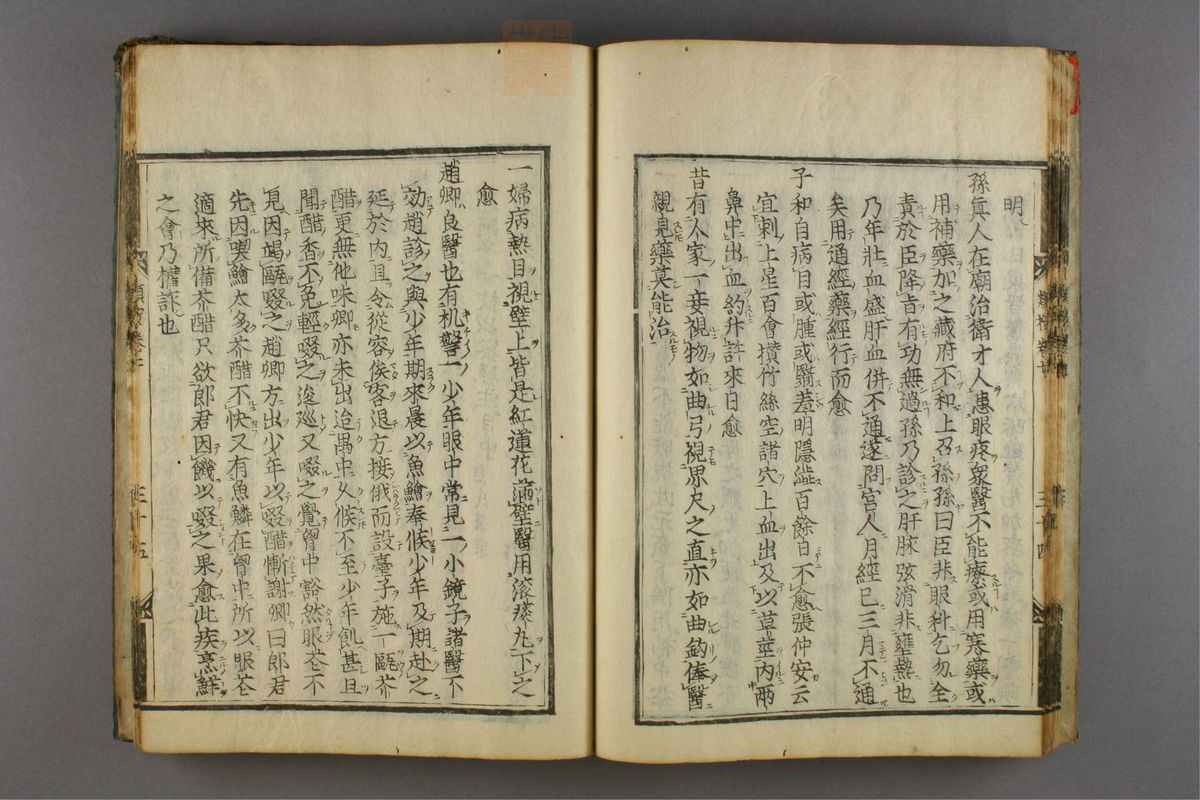 明
孫眞人在廟治衛才人患眼疼衆醫不能療或用寒藥或
用補藥加之藏府不和上召孫孫曰臣非眼科乞勿全
責於臣降旨有功無過孫乃診之肝脉弦滑非壅熱也
乃年壯血盛肝血併不通遂問宮人月經已三月不通
矣用通經藥經行而愈
子和自病目或腫或翳羞明隱澁百餘日不愈張仲安云
宜刺上星百會攅竹絲空諸穴上血出及以草莖内兩
鼻中出血約升許來日愈
昔有人家一妾視物如曲弓視界尺之直亦如曲鈎俾醫
親見藥莫能治
一婦病熱目視壁上皆是紅蓮花滿壁醫用滾痰丸下之
愈
趙卿良醫也有机警一少年眼中常見一小鏡子諸醫不
効趙診之與少年期來晨以魚鱠奉候少年及期赴之
延於内且令從容俟客退方接俄而設臺子施一甌芥
醋更無他味卿亦未出迨禺中久候不至少年飢甚且
聞醋香不免輕啜之逡巡又啜之覺胷中豁然眼花不
見因竭甌啜之趙卿方出少年以啜醋慚謝卿曰郎君
先因喫鱠太多芥醋不快又有魚鱗在胷中所以眼花
適來所備芥醋只欲郎君因饑以啜之果愈此疾烹鮮
之會乃權詐也